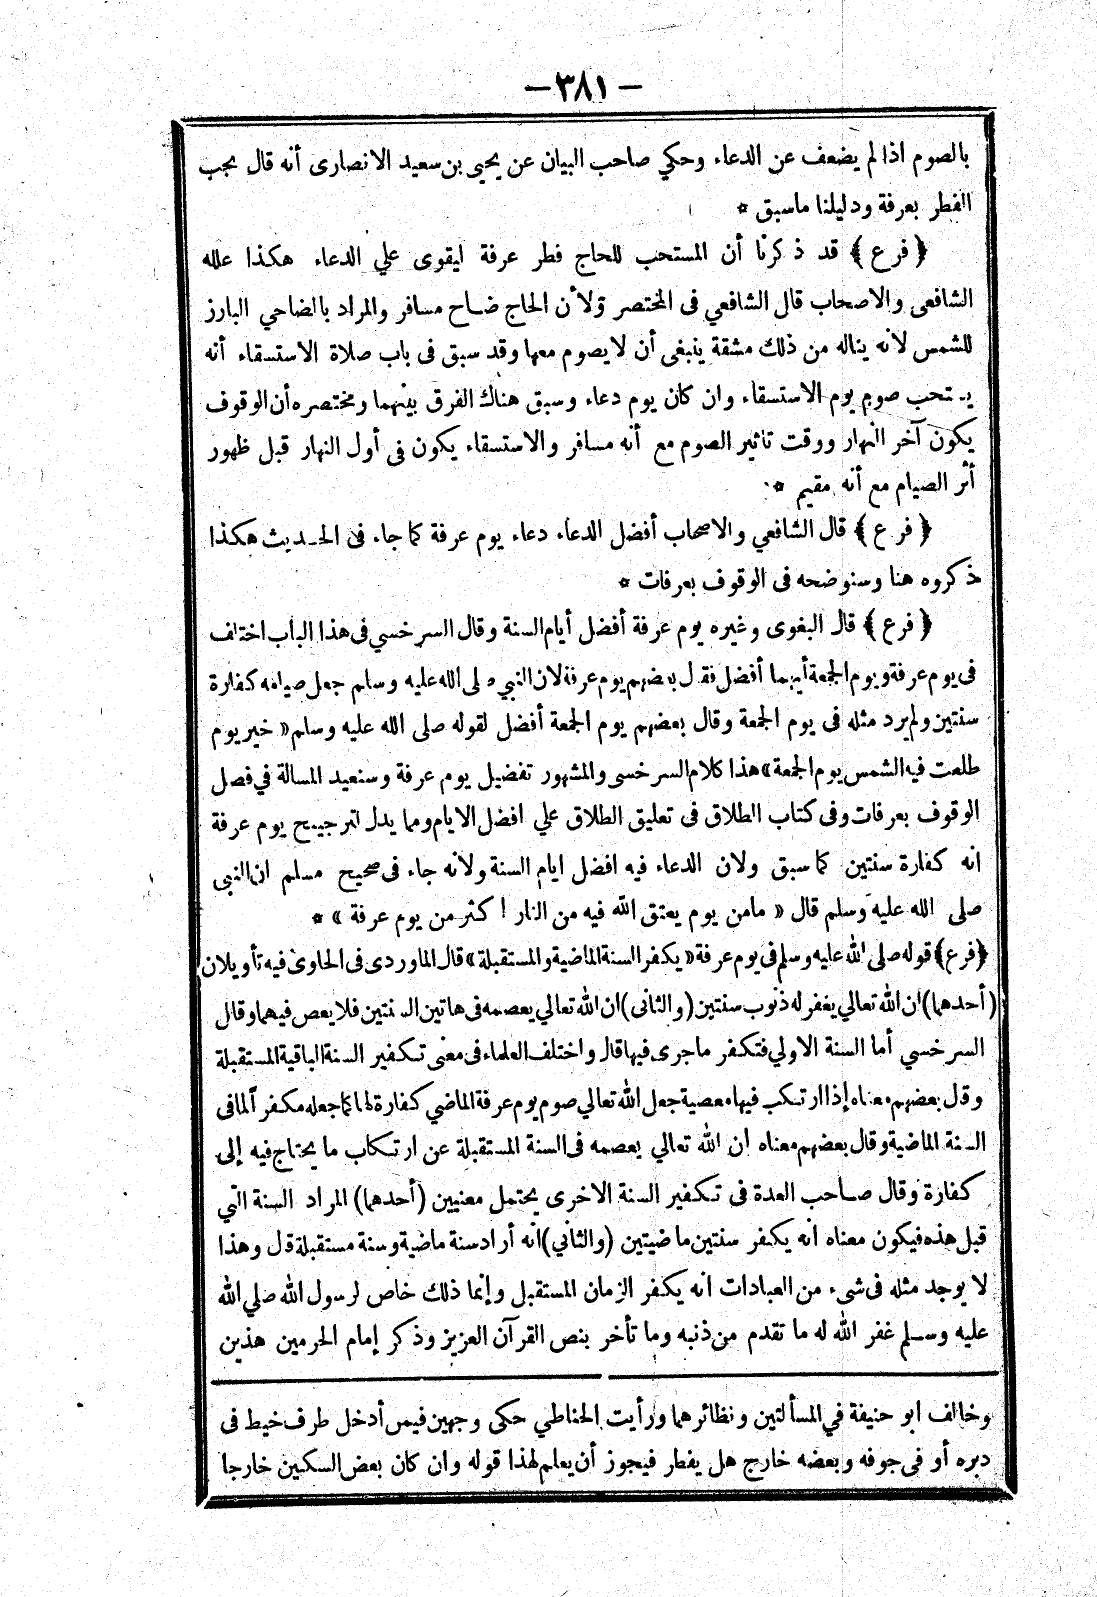 — ٣٨١ —
بالصوم اذا لم يضعف عن الدعاء وحكي صاحب البيان عن يحيى بن سعيد الانصارى أنه قال يجب
الفطر بعرفة ودليلنا ماسبق *
﴿ فرع ﴾ قد ذكرنا أن المستحب للحاج فطر عرفة ليقوى علي الدعاء هكذا علله
الشافعى والاصحاب قال الشافعي فى المختصر ولأن الحاج ضاح مسافر والمراد بالضاحي البارز
للشمس لانه يناله من ذلك مشقة ينبغى أن لا يصوم معها وقد سبق فى باب صلاة الاستسقاء أنه
يستحب صوم يوم الاستسقاء وان كان يوم دعاء وسبق هناك الفرق بينهما ومختصره أن الوقوف
يكون آخر النهار ووقت تاثير الصوم مع أنه مسافر والاستسقاء يكون فى أول النهار قبل ظهور
أثر الصيام مع أنه مقيم *
﴿ فرع ﴾ قال الشافعي والاصحاب أفضل الدعاء دعاء يوم عرفة كما جاء فى الحديث هكذا
ذكروه هنا وسنوضحه فى الوقوف بعرفات *
﴿ فرع ﴾ قال البغوى وغيره يوم عرفة أفضل أيام السنة وقال السرخسي فى هذا الباب اختلف
فى يوم عرفة ويوم الجمعة أيهما أفضل فقال بعضهم يوم عرفة لان النبي صلى الله عليه وسلم جعل صيامه كفارة
سنتين ولم يرد مثله فى يوم الجمعة وقال بعضهم يوم الجمعة أفضل لقوله صلى الله عليه وسلم « خير يوم
طلعت فيه الشمس يوم الجمعة » هذا كلام السرخسى والمشهور تفضيل يوم عرفة وسنعيد المسالة في فصل
الوقوف بعرفات وفى كتاب الطلاق فى تعليق الطلاق علي افضل الايام ومما يدل لترجيح يوم عرفة
انه كفارة سنتين كما سبق ولان الدعاء فيه افضل ايام السنة ولانه جاء فى صحيح مسلم ان النبي
صلى الله عليه وسلم قال « مامن يوم يعتق الله فيه من النار اكثر من يوم عرفة » *
﴿ فرع ﴾ قوله صلى الله عليه وسلم فى يوم عرفة « يكفر السنة الماضية والمستقبلة » قال الماوردى فى الحاوى فيه تأويلان
( أحدهما ) ان الله تعالي يغفر له ذنوب سنتين ( والثانى ) ان الله تعالي يعصمه فى هاتين السنتين فلا يعص فيهما وقال
السرخسي أما السنة الاولي فتكفر ما جرى فيها قال واختلف العلماء فى معنى تكفير السنة الباقية المستقبلة
وقال بعضهم معناه إذا ارتكب فيها معصية جعل الله تعالي صوم يوم عرفة الماضي كفارة لها كما جعله مكفرا لما فى
السنة الماضية وقال بعضهم معناه ان الله تعالي يعصمه فى السنة المستقبلة عن ارتكاب ما يحتاج فيه إلى
كفارة وقال صاحب العدة فى تكفير السنة الاخرى يحتمل معنيين ( أحدهما ) المراد السنة التي
قبل هذه فيكون معناه انه يكفر سنتين ماضيتين ( والثاني ) انه أراد سنة ماضية وسنة مستقبلة قال وهذا
لا يوجد مثله فى شىء من العبادات انه يكفر الزمان المستقبل وإنما ذلك خاص لرسول الله صلي الله
عليه وسلم غفر الله له ما تقدم من ذنبه وما تأخر بنص القرآن العزيز وذكر إمام الحرمين هذين
وخالف ابو حنيفة في المسألتين ونظائرهما ورأيت الحناطي حكى وجهين فيمن أدخل طرف خيط فى
دبره أو فى جوفه وبعضه خارج هل يفطر فيجوز أن يعلم لهذا قوله وان كان بعض السكين خارجا